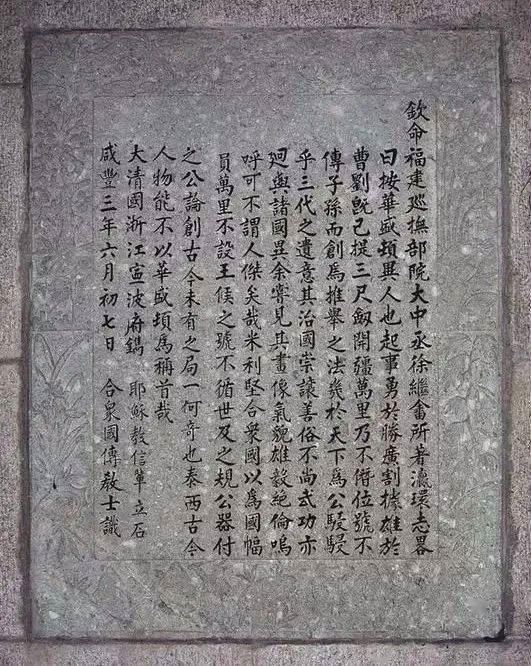 欽命福建廵撫部院大中丞徐繼畬所著瀛環志畧
曰按華盛頓異人也起事勇於勝廣割據雄於
曹劉既已提三尺劔開疆萬里乃不僭位號不
傳子孫而創爲推舉之法幾於天下爲公駸駸
乎三代之遺意其治國崇讓善俗不尚武功亦
廻與諸國異余嘗見其畫像氣貌雄毅絕倫嗚
呼可不謂人傑矣哉米利堅合衆國以爲國幅
員萬里不設王侯之號不循世及之規公器付
之公論創古今未有之局一何奇也泰西古今
人物能不以華盛頓爲稱首哉
大清國浙江寧波府鐫 耶穌教信輩立石
咸豐三年六月初七日 合衆國傳教士識